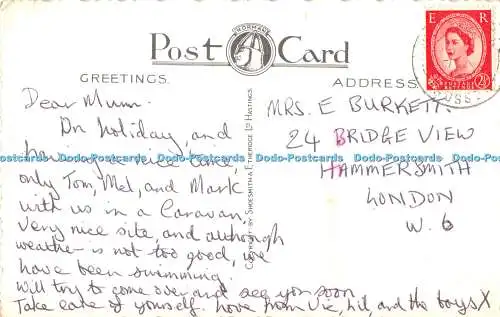 NORMAN
Post Card
GREETINGS.
ADDRESS
E R
POSTAGE
2½
Dear Mum.
On holiday, and
having a nice time,
only Tom, Mel, and Mark
with us in a Caravan.
Very nice site, and although
weather is not too good, we
have been swimming.
will try to come over and see you soon
Take care of yourself. love from Vic, Lil, and the boys X
COPYRIGHT BY SHOESMITH & ETHERIDGE LTD HASTINGS
MRS. E BURKETT
24 BRIDGE VIEW
HAMMERSMITH
LONDON
W. 6
Dodo-Postcards Dodo-Postcards Dodo-Postcards Dodo-Postcards Dodo-Postcards
Dodo-Postcards Dodo-Postcards Dodo-Postcards Dodo-Postcards Dodo-Postcards